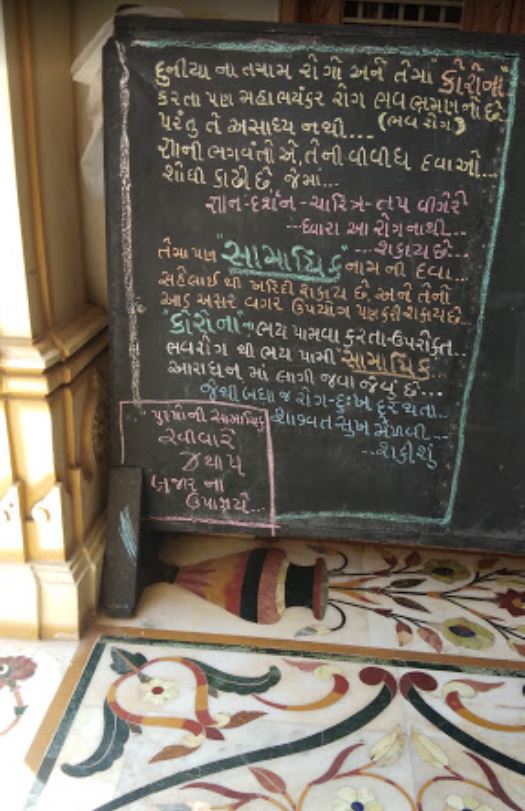 દુનીયા ના તમામ રોગો અને તેમાં કોરોના
કરતા પણ મહાભયંકર રોગ ભવભ્રમણનો છે
(ભવરોગ)
પરંતુ તે અસાધ્ય નથી....
જ્ઞાની ભગવંતો એ, તેની વીવીધ દવાઓ..
શોધી કાઢી છે, જેમાં...
જ્ઞાન-દર્શન-ચારિત્ર-તપ વીગેરે
--દ્વારા આ રોગ નાથી...
--શકાય છે...
તેમા પણ "સામાયિક" નામ ની દવા...
સહેલાઈ થી ખરિદી શકાય છે, અને તેનો
આડ અસર વગર ઉપયોગ પણ કરી શકાય છે..
"કોરોના" ભય પામવા કરતા-ઉપરોક્ત..
ભવરોગ થી ભય પામી સામાયિક..
આરાધના માં લાગી જવા જેવું છે...
જેથી બધા જ રોગ-દુઃખ દૂર થતા..
શાશ્વત સુખ મેળવી...
--શકીશું
પુરુષોની સામાયિક
રવીવારે
બજાર ના
ઉપાશ્રયે...